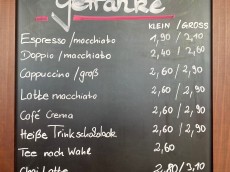 Getränke
KLEIN / GROSS
Espresso/macchiato 1,90 / 2,10
Doppio/macchiato 2,40 / 2,60
Cappuccino/groß 2,60 / 2,90
Latte macchiato 2,60 / 2,90
Café Crema 2,60 / 2,90
Heiße Trinkschokolade 2,60 / 2,90
Tee nach Wahl 2,60
Chai Latte 2,80 / 3,10